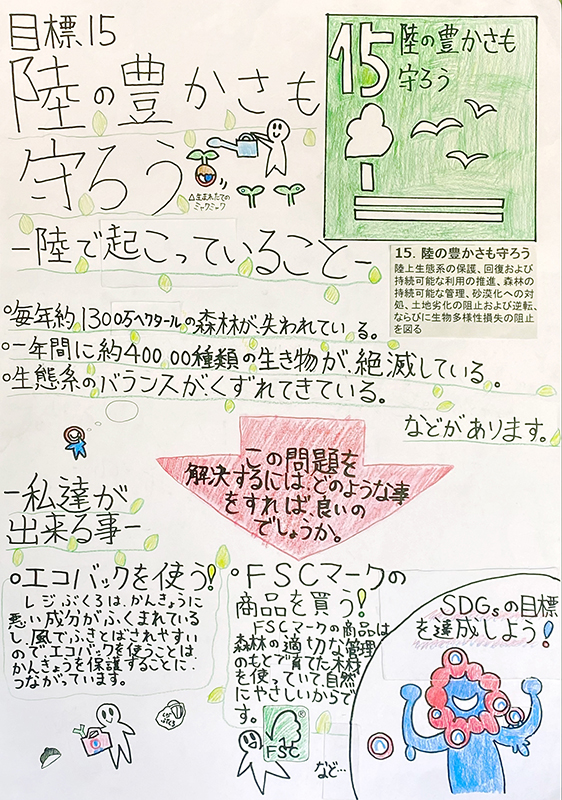 目標.15
陸の豊かさも
守ろう
△生まれたての
ミャクミャク
15
陸の豊かさも
守ろう
15. 陸の豊かさも守ろう
陸上生態系の保護、回復および
持続可能な利用の推進、森林の
持続可能な管理、砂漠化への対
処、土地劣化の阻止および逆転、
ならびに生物多様性損失の阻止
を図る
-陸で起こっていること-
○毎年約1300万ヘクタールの森林が、失われている。
○一年間に約40000種類の生き物が、絶滅している。
○生態系のバランスが、くずれてきている。
などがあります。
この問題を
解決するには、どのような事
をすれば、良いの
でしょうか。
-私達が
出来る事-
○エコバックを使う!
レジぶくろは、かんきょうに
悪い成分がふくまれている
し、風でふきとばされやすい
のでエコバックを使うことは、
かんきょうを保護することに、
つながっています。
○FSCマークの
商品を買う!
FSCマークの商品は
森林の適切な管理
のもとで育てた木材
を使っていて、自然
にやさしいからで
す。
FSC
®
など…
SDGsの目標
を達成しよう!